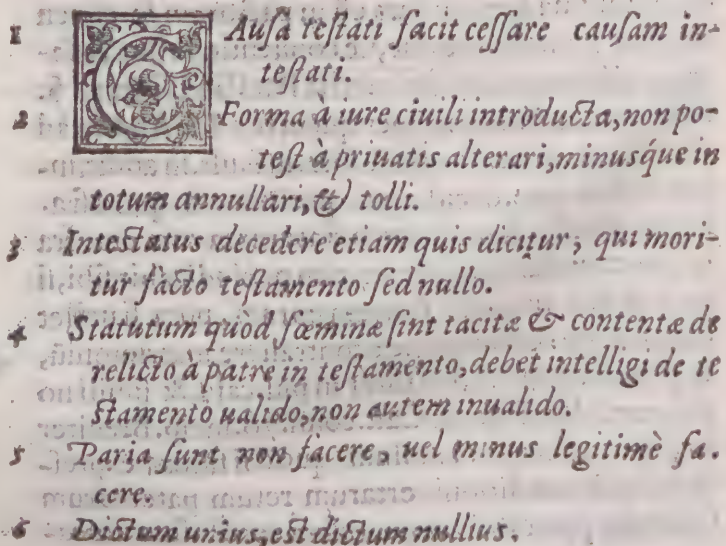 1 CAusa testati facit cessare causam in-
testati.
2 Forma à iure ciuili introducta, non po-
test à priuatis alterari, minusq́ue in
totum annullari, & tolli.
3 Intestatus decedere etiam quis dicitur, qui mori-
tur facto testamento sed nullo.
4 Statutum quòd fœminæ sint tacitæ & contentæ de
relicto à patre in testamento, debet intelligi de te
stamento ualido, non autem inualido.
5 Paria sunt non facere, uel minus legitimè fa.
cere.
6 Dictum unius, est dictum nullius.